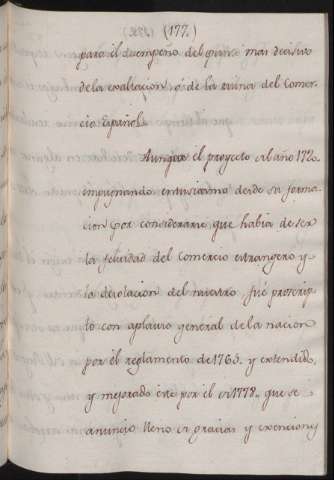 (177.)
para el desempeño del punto mas decisivo
de la exaltacion, ó de la ruina del Comer-
cio Español.
Aunque el proyecto del año 1720
impugnando entusiasmo desde su forma-
cion por considerarse que habia de ser
la felicidad del Comercio extrangero y
la desolacion del nuestro fué proscrip-
to con aplauso general de la nacion
por el reglamento de 1765. y extendido,
y mejorado este por el de 1778. que se
anunció lleno de gracias y exenciones